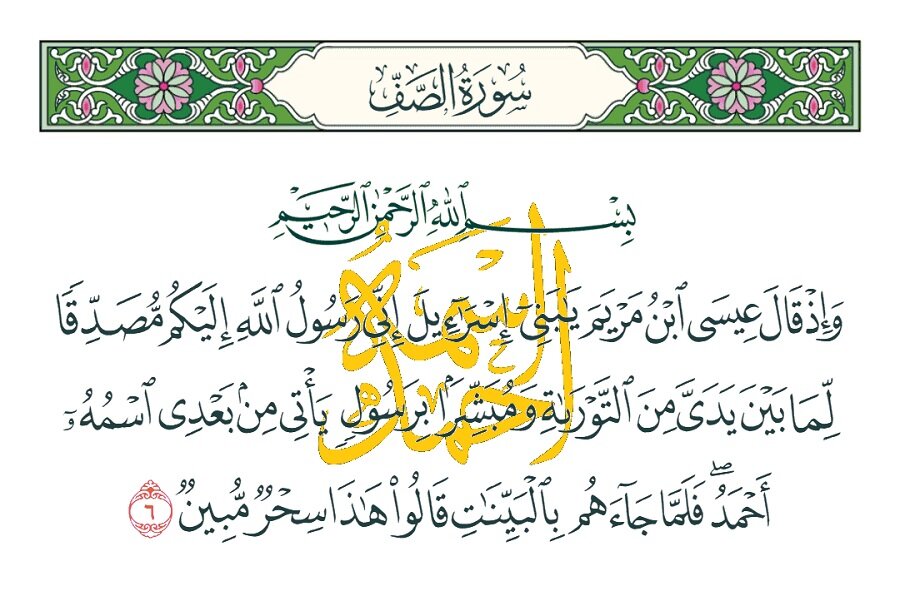 سُورَةُ الصَّفِّ
بِسْمِ ٱللَّهِ ٱلرَّحْمَٰنِ ٱلرَّحِيمِ
وَإِذْ قَالَ عِيسَى ٱبْنُ مَرْيَمَ يَٰبَنِىٓ إِسْرَٰٓءِيلَ إِنِّى رَسُولُ ٱللَّهِ إِلَيْكُم مُّصَدِّقًا
لِّمَا بَيْنَ يَدَىَّ مِنَ ٱلتَّوْرَىٰةِ وَمُبَشِّرًۢا بِرَسُولٍ يَأْتِى مِنۢ بَعْدِى ٱسْمُهُۥٓ
أَحْمَدُ ۖ فَلَمَّا جَآءَهُم بِٱلْبَيِّنَٰتِ قَالُوا۟ هَٰذَا سِحْرٌ مُّبِينٌ ٦
اسمه احمد